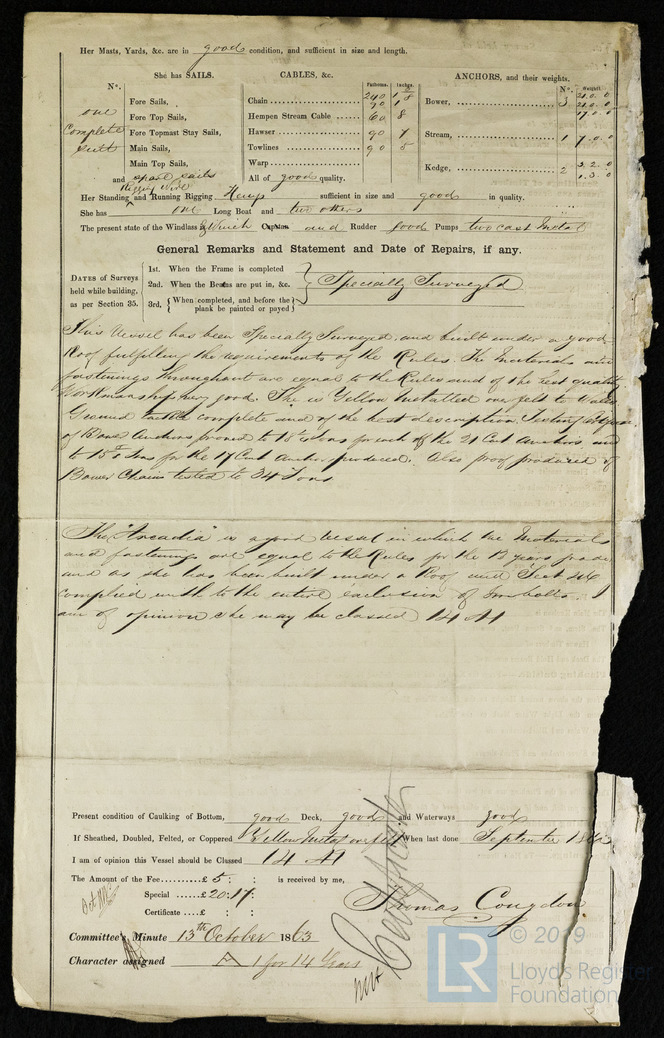 Her Masts, Yards, &c. are in good condition, and sufficient in size and length.
She has SAILS. CABLES, &c. ANCHORS, and their weights.
Nº. Fathoms. Inches. Nº. Weight
one Complete Suit
Fore Sails,
Fore Top Sails,
Fore Topmast Stay Sails,
Main Sails,
Main Top Sails,
and spare sails
Chain 240 1 8
90 1
Hempen Stream Cable 60 8
Hawser 90 7
Towlines 90 5
Warp
All of good quality.
Bower, 3 21.0.0
21.0.0
17.0.0
Stream, 1 7.0.0
Kedge, 2 3.2.0
1.3.0
Rigging Wire
Her Standing and Running Rigging Hemp sufficient in size and good in quality.
She has one Long Boat and two others
The present state of the Windlass & Winch Capstan and Rudder good Pumps two cast Metal
General Remarks and Statement and Date of Repairs, if any.
DATES of Surveys held while building, as per Section 35.
1st. When the Frame is completed
2nd. When the Beams are put in, &c.
3rd. When completed, and before the plank be painted or payed
Specially Surveyed
This Vessel has been Specially Surveyed and built under a good
Roof fulfilling the requirements of the Rules. The Materials and
fastenings throughout are equal to the Rules and of the best quality
Workmanship very good. She is Yellow Metalled over felt to Wales
Ground tackle complete and of the best description.
of Bower Anchors proved to 18 Tons for each of the 21 Cwt Anchors and
to 15 Tons for the 17 Cwt Anchor produced. Also proof produced of
Bower Chains tested to 34 Tons
The "Arcadia" is a good Vessel in which the Materials
and fastenings are equal to the Rules for the 12 years grade
and as she has been built under a Roof and Sect
complied with to the entire exclusion of Iron bolts. I
am of opinion she may be classed 14 A1
Present condition of Caulking of Bottom, good Deck, good and Waterways good
If Sheathed, Doubled, Felted, or Coppered Yellow Metal over felt When last done September 1863
I am of opinion this Vessel should be Classed 14 A1
The Amount of the Fee £ 5 : : is received by me,
Special £ 20 : 17 :
Certificate £ : :
Thomas Congdon
Committee's Minute 13th October 1863
Character assigned A 1 for 14 Years
© 2019
LR
Lloyd's Register
Foundation